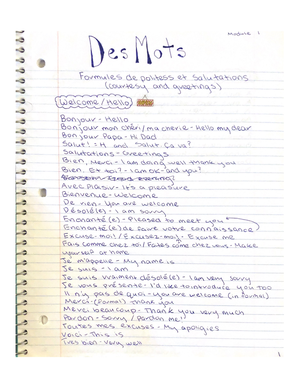 Module 1
Des Mots
Formules de politess et Salutations
(courtesy and greetings)
Welcome/Hello
Bonjour - Hello
Bonjour mon cheri/ma cherie - Hello my dear
Bonjour Papa - Hi Dad
Salut! : Hi and Salut Ça va?
Salutations - Greetings
Bien, Merci - I am doing well thank you
Bien, Et toi? - I am ok - and you?
Avec Plaisir - It's a pleasure
Bienvenue - Welcome
De rien - You are welcome
Désolé(e) - I am sorry
Enchanté(e) - Pleased to meet you
Enchanté(e) de faire votre connaissance
Excuse-moi / Excusez-moi - Excuse me
Fais comme chez toi/Faites come chez vous - Make
yourself at home
Je m'appelle - My name is
Je suis - I am
Je suis vraiment désolé(e) - I am very sorry
Je vous présente - I'd like to introduce you too
Il n'y pas de quoi - you are welcome (in formal)
Merci - (Formal) thank you
Merci beaucoup - Thank you very much
Pardon - Sorry / Pardon me!
Toutes mes excuses - My apologies
Voici - This is
Tres bien - Very well
1